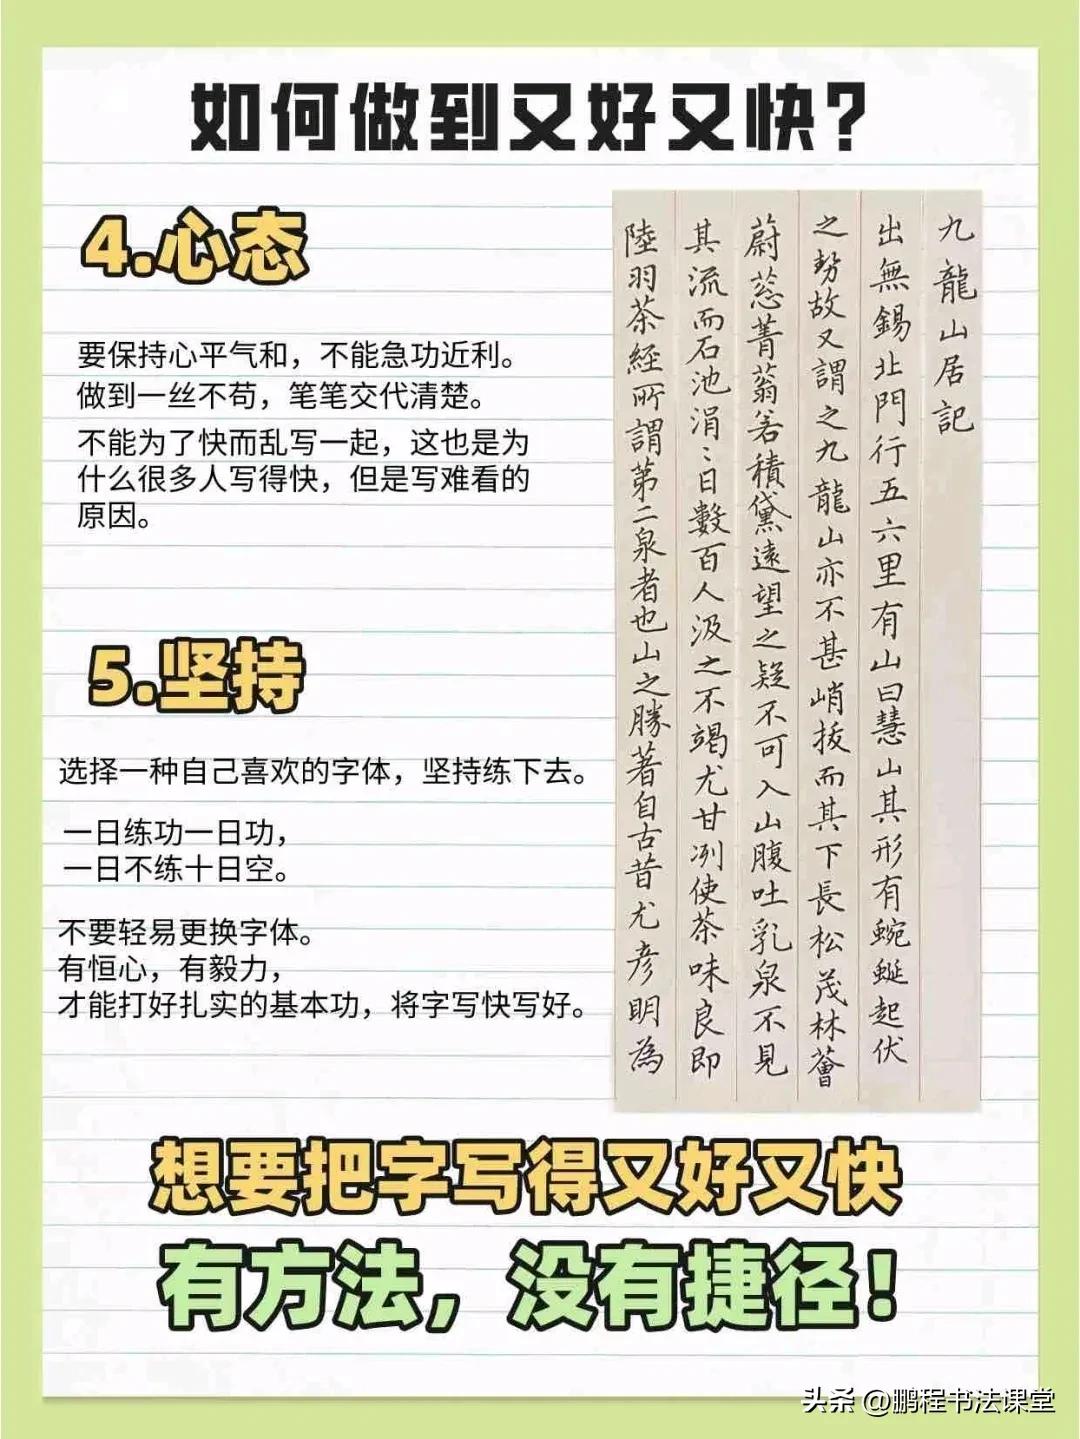 如何做到又好又快?
4.心态
要保持心平气和，不能急功近利。
做到一丝不苟，笔笔交代清楚。
不能为了快而乱写一起，这也是为
什么很多人写得快，但是写难看的
原因。
5.坚持
选择一种自己喜欢的字体，坚持练下去。
一日练功一日功，
一日不练十日空。
不要轻易更换字体。
有恒心，有毅力，
才能打好扎实的基本功，将字写快写好。
九龍山居記
出無錫北門行五六里有山曰慧山其形有蜿蜒起伏
之勢故又謂之九龍山亦不甚峭拔而其下長松茂林薈
蔚葱菁蓊若積黛遠望之疑不可入山腹吐乳泉不見
其流而石池涓〻日數百人汲之不竭尤甘冽使茶味良即
陸羽茶經所謂第二泉者也山之勝著自古昔尤彦明為
想要把字写得又好又快
有方法，没有捷径！
头条 @鹏程书法课堂